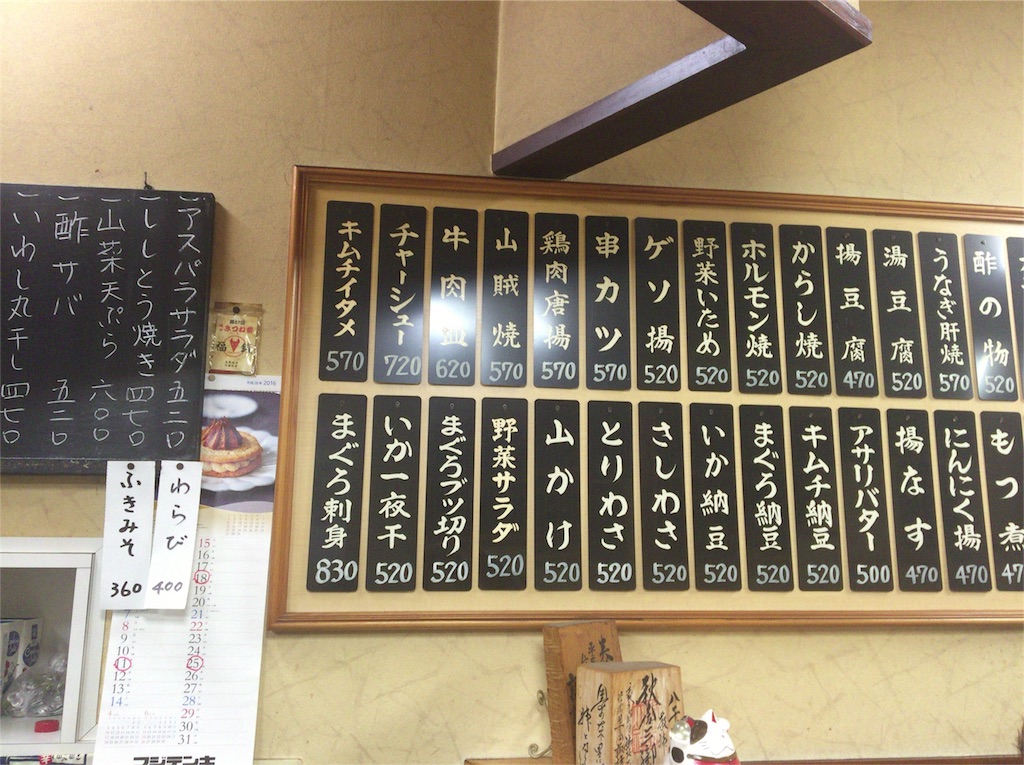 一アスパラサラダ 五二〇
一ししとう焼き 四七〇
一山菜天ぷら 六〇〇
一酢サバ 五二〇
一いわし丸干し 四七〇
わらび 400
ふきみそ 360
2016
15
16
17
18
19
20
21
22
23
24
25
26
27
28
29
30
31
7
8
9
10
11
12
13
14
フジデンキ
酢の物 520
うなぎ肝焼 570
湯豆腐 520
揚豆腐 470
からし焼 520
ホルモン焼 520
野菜いため 520
ゲソ揚 520
串カツ 570
鶏肉唐揚 570
山賊焼 570
牛肉皿 620
チャーシュー 720
キムチイタメ 570
もつ煮 47
にんにく揚 470
揚なす 470
アサリバター 500
キムチ納豆 520
まぐろ納豆 520
いか納豆 520
さしわさ 520
とりわさ 520
山かけ 520
野菜サラダ 520
まぐろブツ切り 520
いか一夜干 520
まぐろ刺身 830